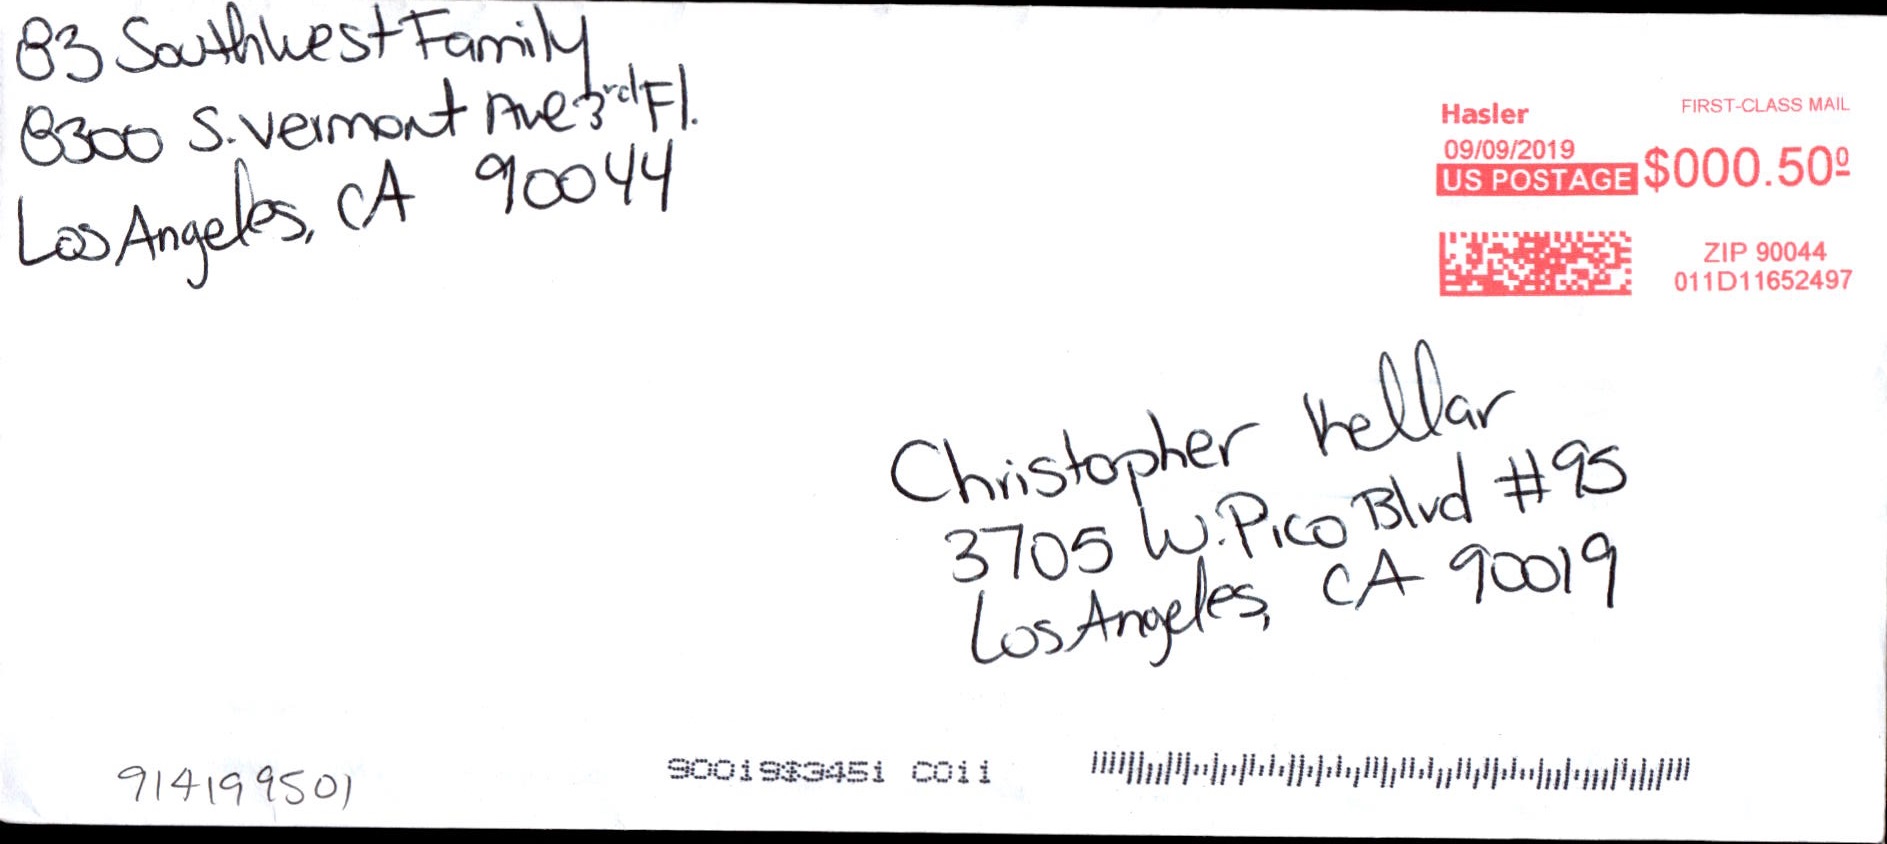 83 Southwest Family
8300 S. Vermont Ave 3rd Fl.
Los Angeles, CA 90044
Hasler
FIRST-CLASS MAIL
09/09/2019
US POSTAGE $000.50⁰
ZIP 90044
011D11652497
Christopher Kellar
3705 W. Pico Blvd #95
Los Angeles, CA 90019
914199501
90019$3451 C011